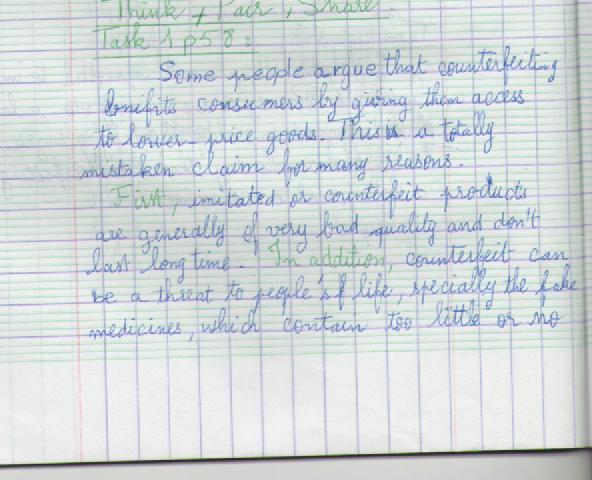 Think, Pair, Share.
Task 1 p58:
Some people argue that counterfeiting
benifits consumers by giving them access
to lower-price goods. This is a totally
mistaken claim for many reasons.
First, imitated or counterfeit products
are generally of very bad quality and don't
last long time. In addition, counterfeit can
be a threat to people's life, specially the fake
medicines, which contain too little or no